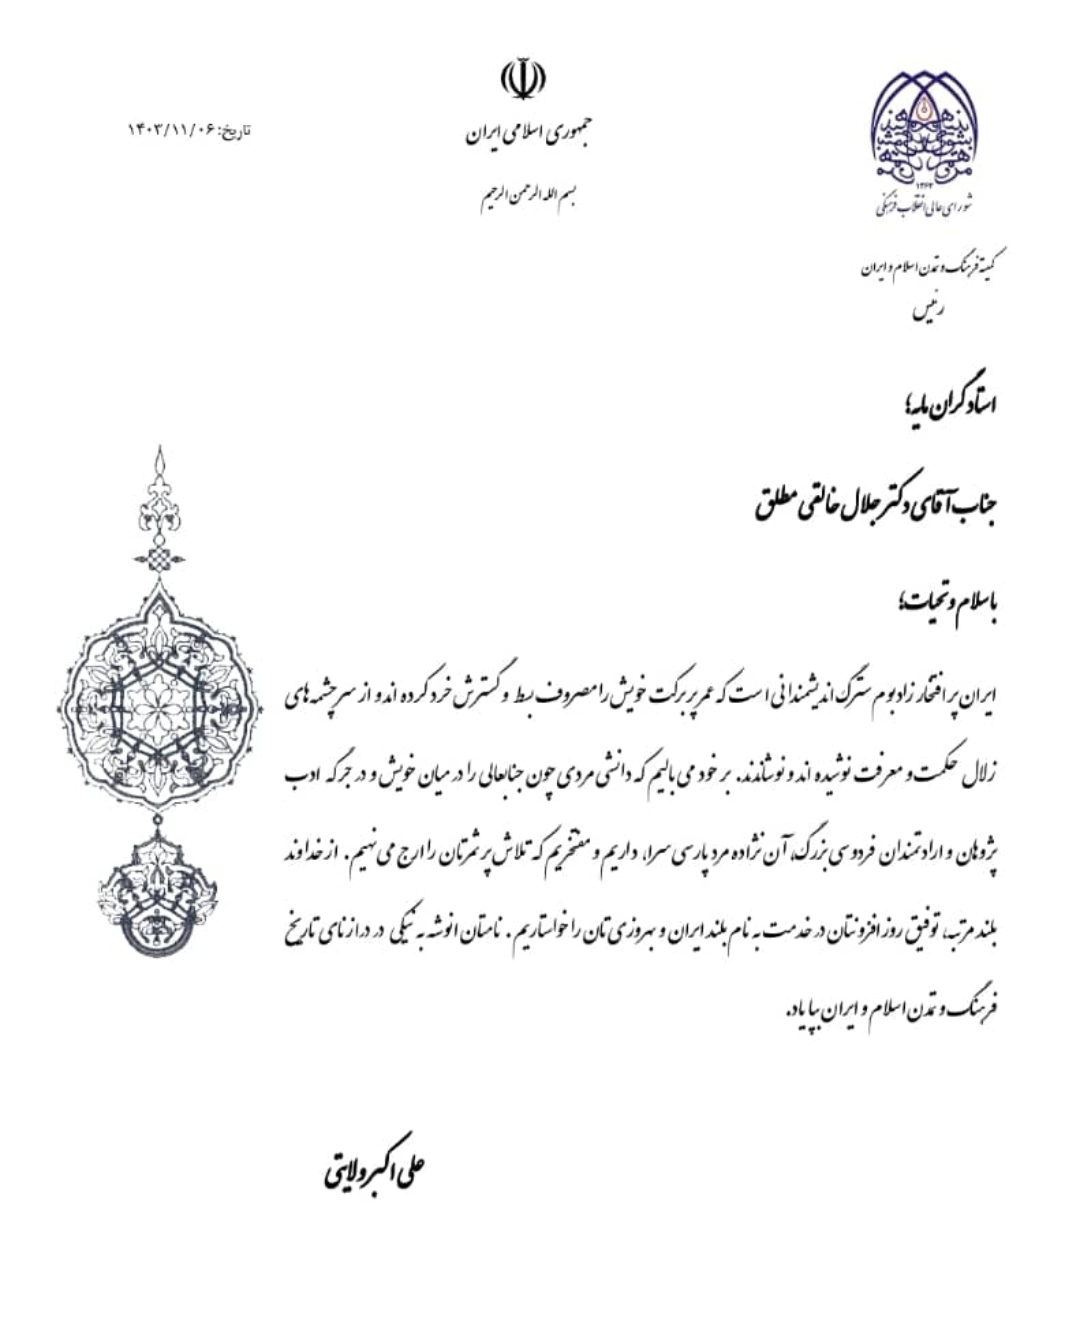 تاریخ: ۱۴۰۳/۱۱/۰۶
جمهوری اسلامی ایران
بسم الله الرحمن الرحیم
۱۳۶۳
شورای عالی انقلاب فرهنگی
کمیته فرهنگ و تمدن اسلام و ایران
رئیس
استاد گران مایه؛
جناب آقای دکتر جلال خالقی مطلق
با سلام و تحیات؛
ایران پر افتخار زادبوم سترگ اندیشمندانی است که عمر پر برکت خویش را مصروف بسط و گسترش خرد کرده اند و از سرچشمه های
زلال حکمت و معرفت نوشیده اند و نوشاندند. بر خود می بالیم که دانشی مردی چون جنابعالی را در میان خویش و در جرگه ادب
پژوهان و ارادتمندان فردوسی بزرگ، آن نژاده مرد پارسی سرا، داریم و مفتخریم که تلاش پر ثمرتان را ارج می نهیم. از خداوند
بلند مرتبه، توفیق روز افزونتان در خدمت به نام بلند ایران و بهروزی تان را خواستاریم. نامتان انوشه به نیکی در درازنای تاریخ
فرهنگ و تمدن اسلام و ایران بپا یاد.
علی اکبر ولایتی